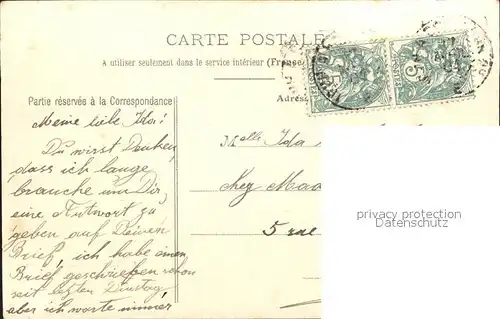 CARTE POSTALE
A utiliser seulement dans le service intérieur (France
Partie réservée à la Correspondance
Adres
Meine liebe Ida!
Du wirst Denken,
dass ich lange
brauche um Dir,
eine Antwort zu
geben auf Deinen
Brief, ich habe einen
Brief geschrieben schon
seit letzten Dinstag,
aber ich warte immer
Melle Ida
Chez Maa
5 rue
privacy protection
Datenschutz